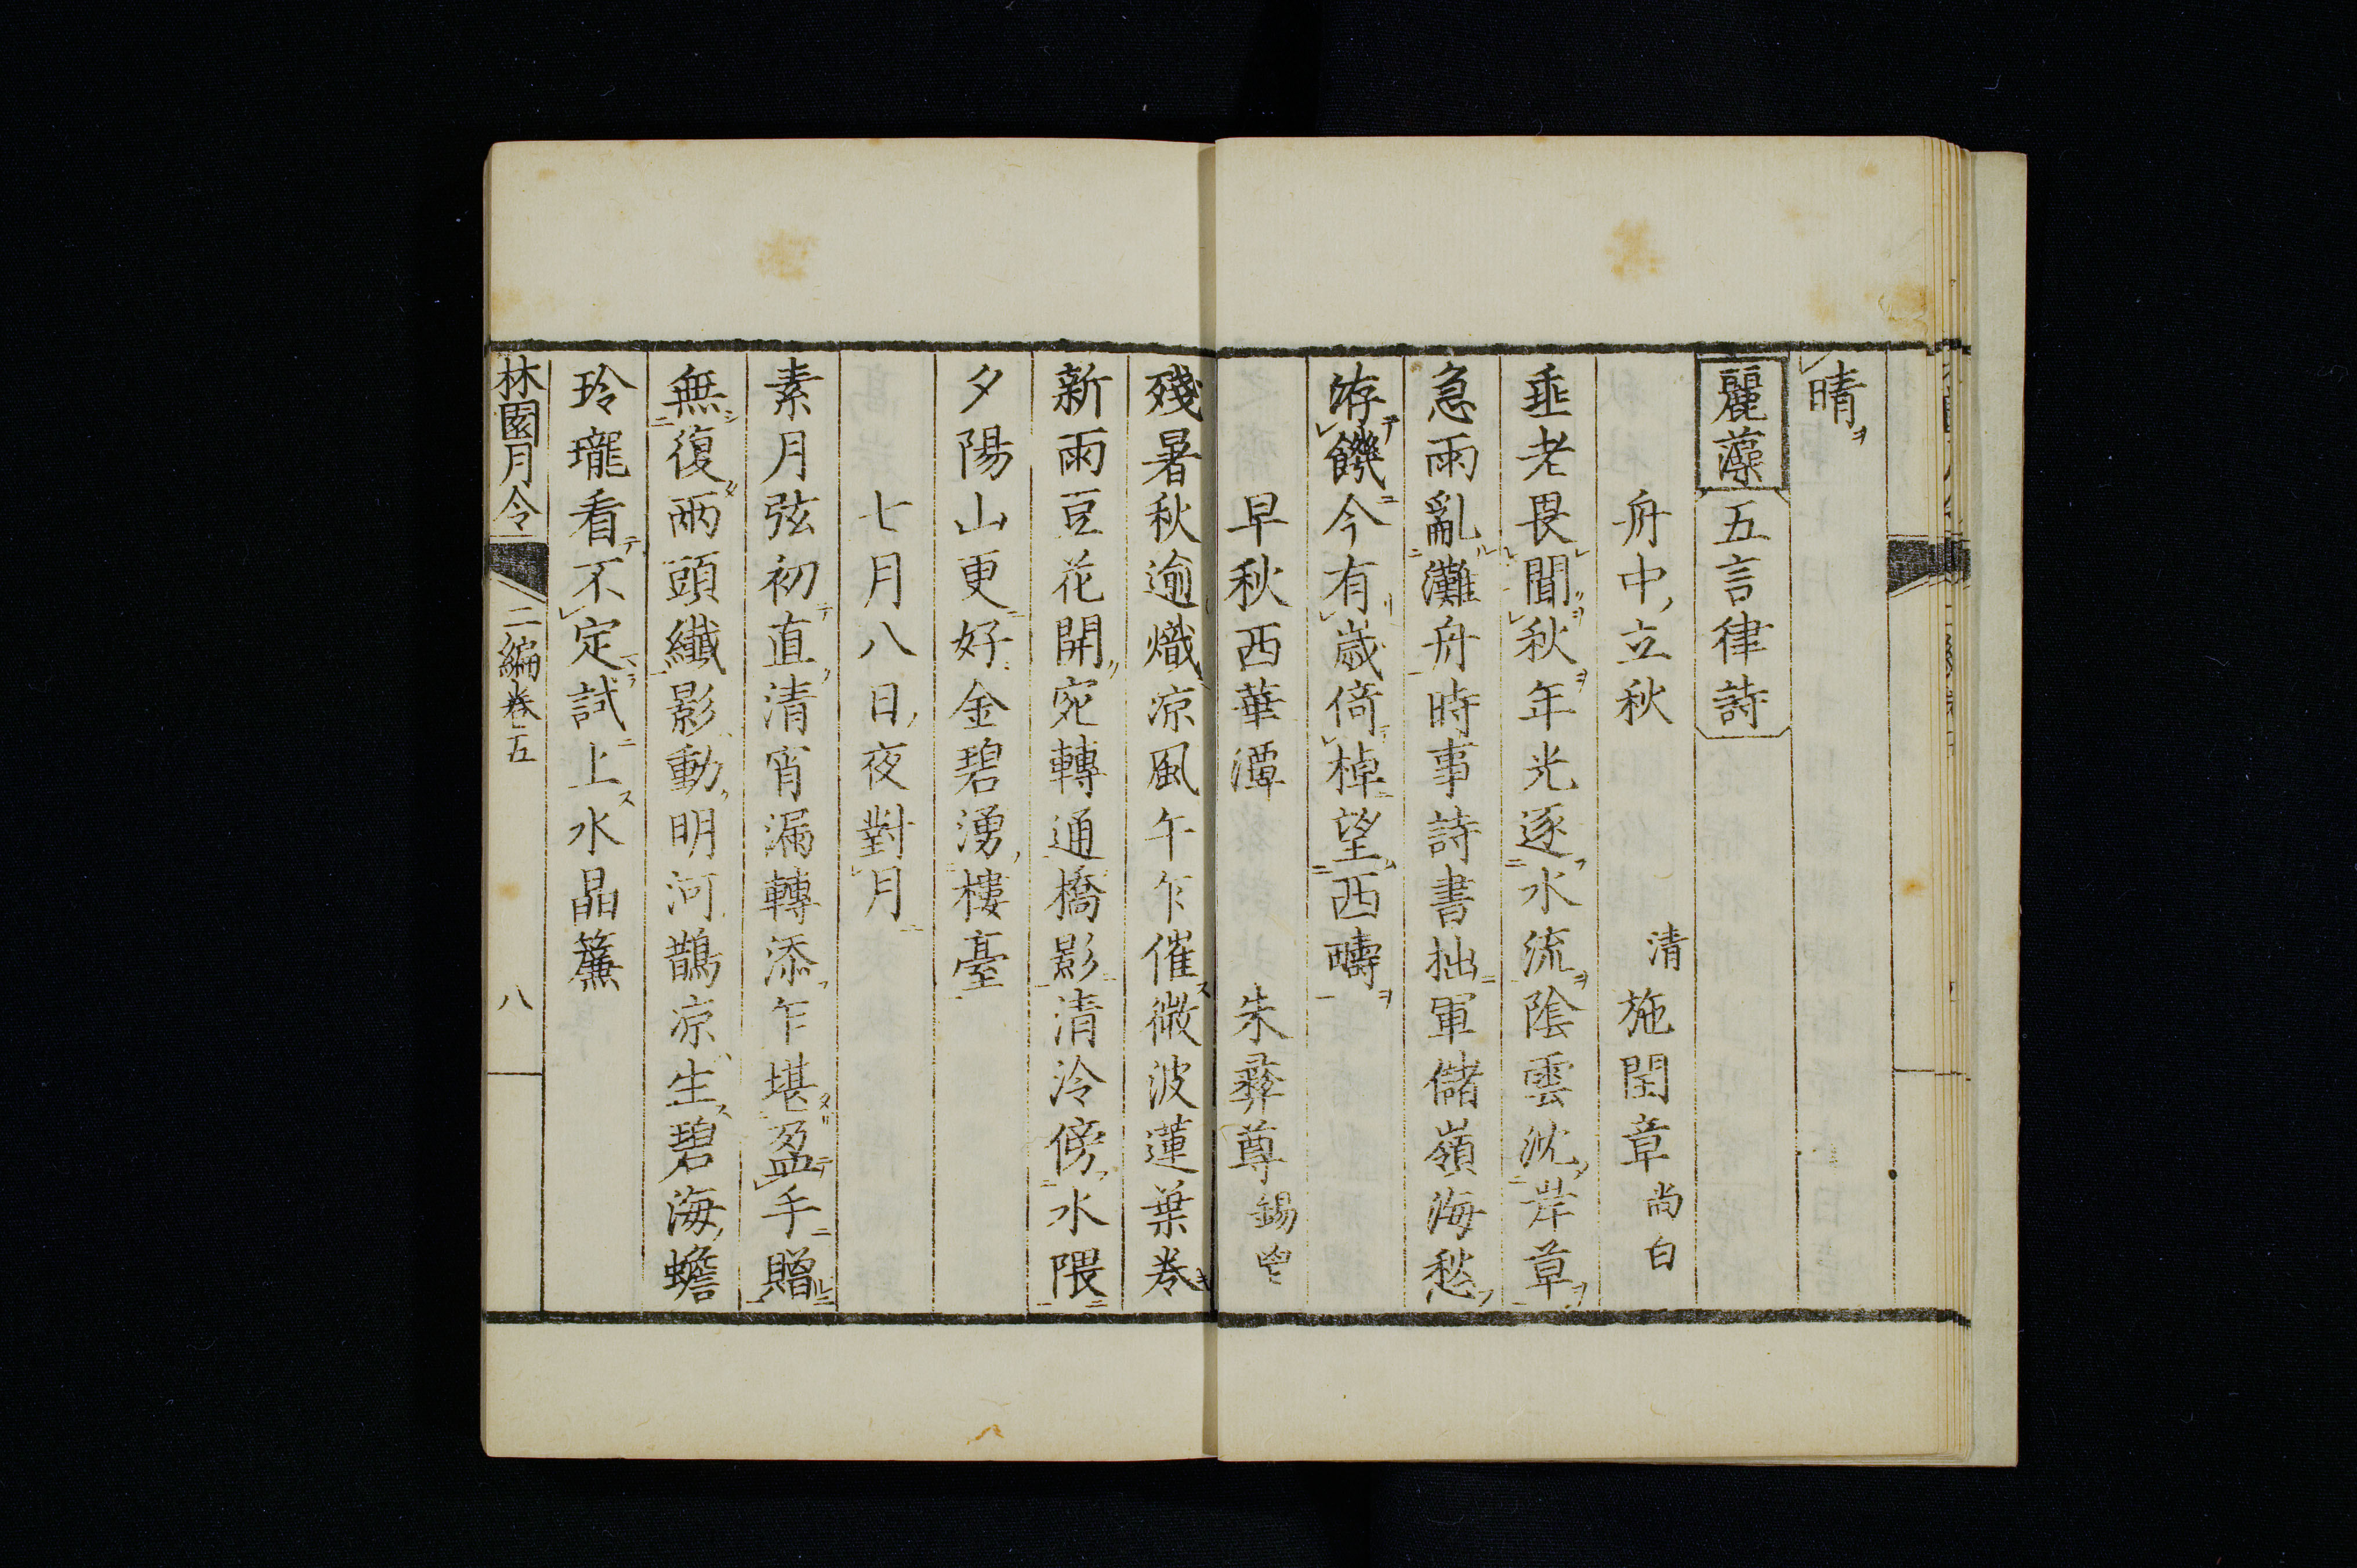 晴
麗藻 五言律詩
舟中立秋
清 施閏章 尚白
垂老畏聞秋年光逐水流陰雲沈岸草
急雨亂灘舟時事詩書拙軍儲嶺海愁
洊饑今有歲倚棹望西疇
早秋西華潭 朱彝尊 錫鬯
殘暑秋逾熾凉風午乍催微波蓮葉卷
新雨豆花開宛轉通橋影清泠傍水隈
夕陽山更好金碧湧樓臺
七月八日夜對月
素月弦初直清宵漏轉添乍堪盈手贈
無復兩頭纖影動明河鵲凉生碧海蟾
玲瓏看不定試上水晶簾
林園月令 二編卷五 八